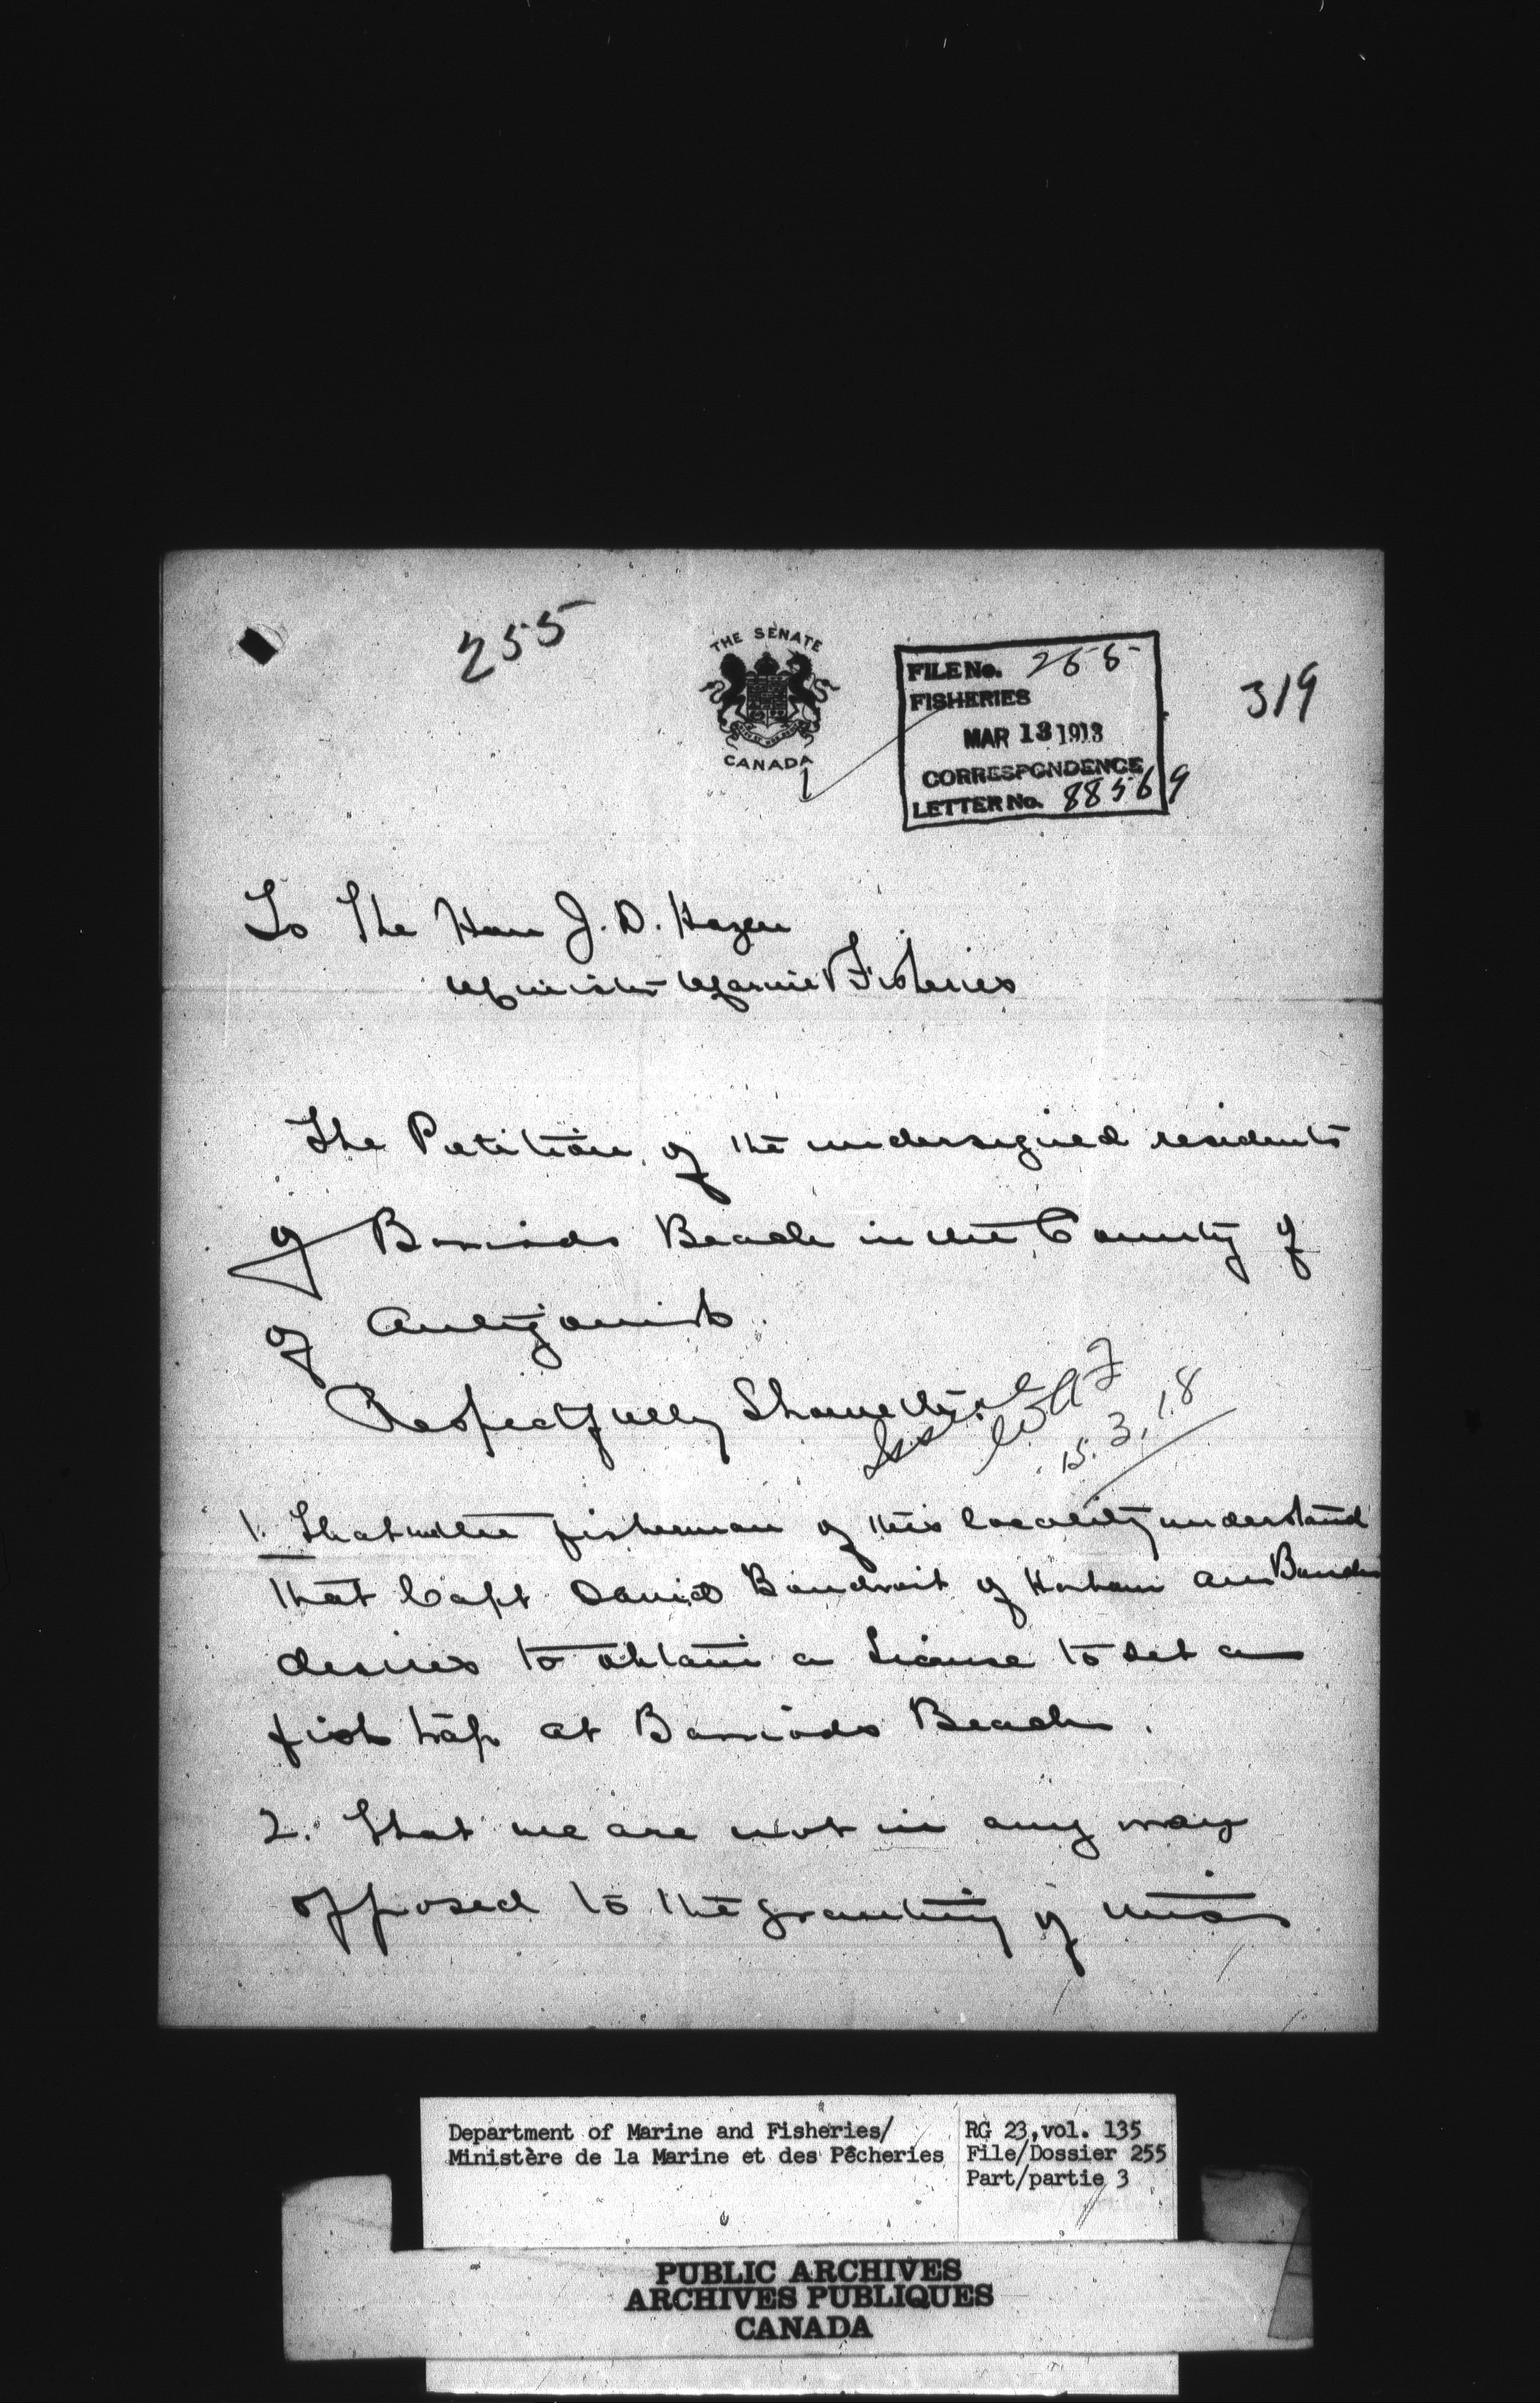 255
THE SENATE
CANADA
FILE No. 255
FISHERIES
MAR 13 1913
CORRESPONDENCE
LETTER No. 88569
319
To The Hon J. D. Hazen
Minister Marine & Fisheries
The Petition of the undersigned residents
of Bayfields Beach in the County of
of Antigonish
Respectfully Sheweth:
15.3.18
1. That we the fisherman of this locality understand
that Capt David Boudroit of Harbour au Bouche
desires to obtain a License to set a
fish trap at Beach.
2. That we are not in any way
opposed to the granting of this
Department of Marine and Fisheries/
Ministère de la Marine et des Pêcheries
RG 23, vol. 135
File/Dossier 255
Part/partie 3
PUBLIC ARCHIVES
ARCHIVES PUBLIQUES
CANADA